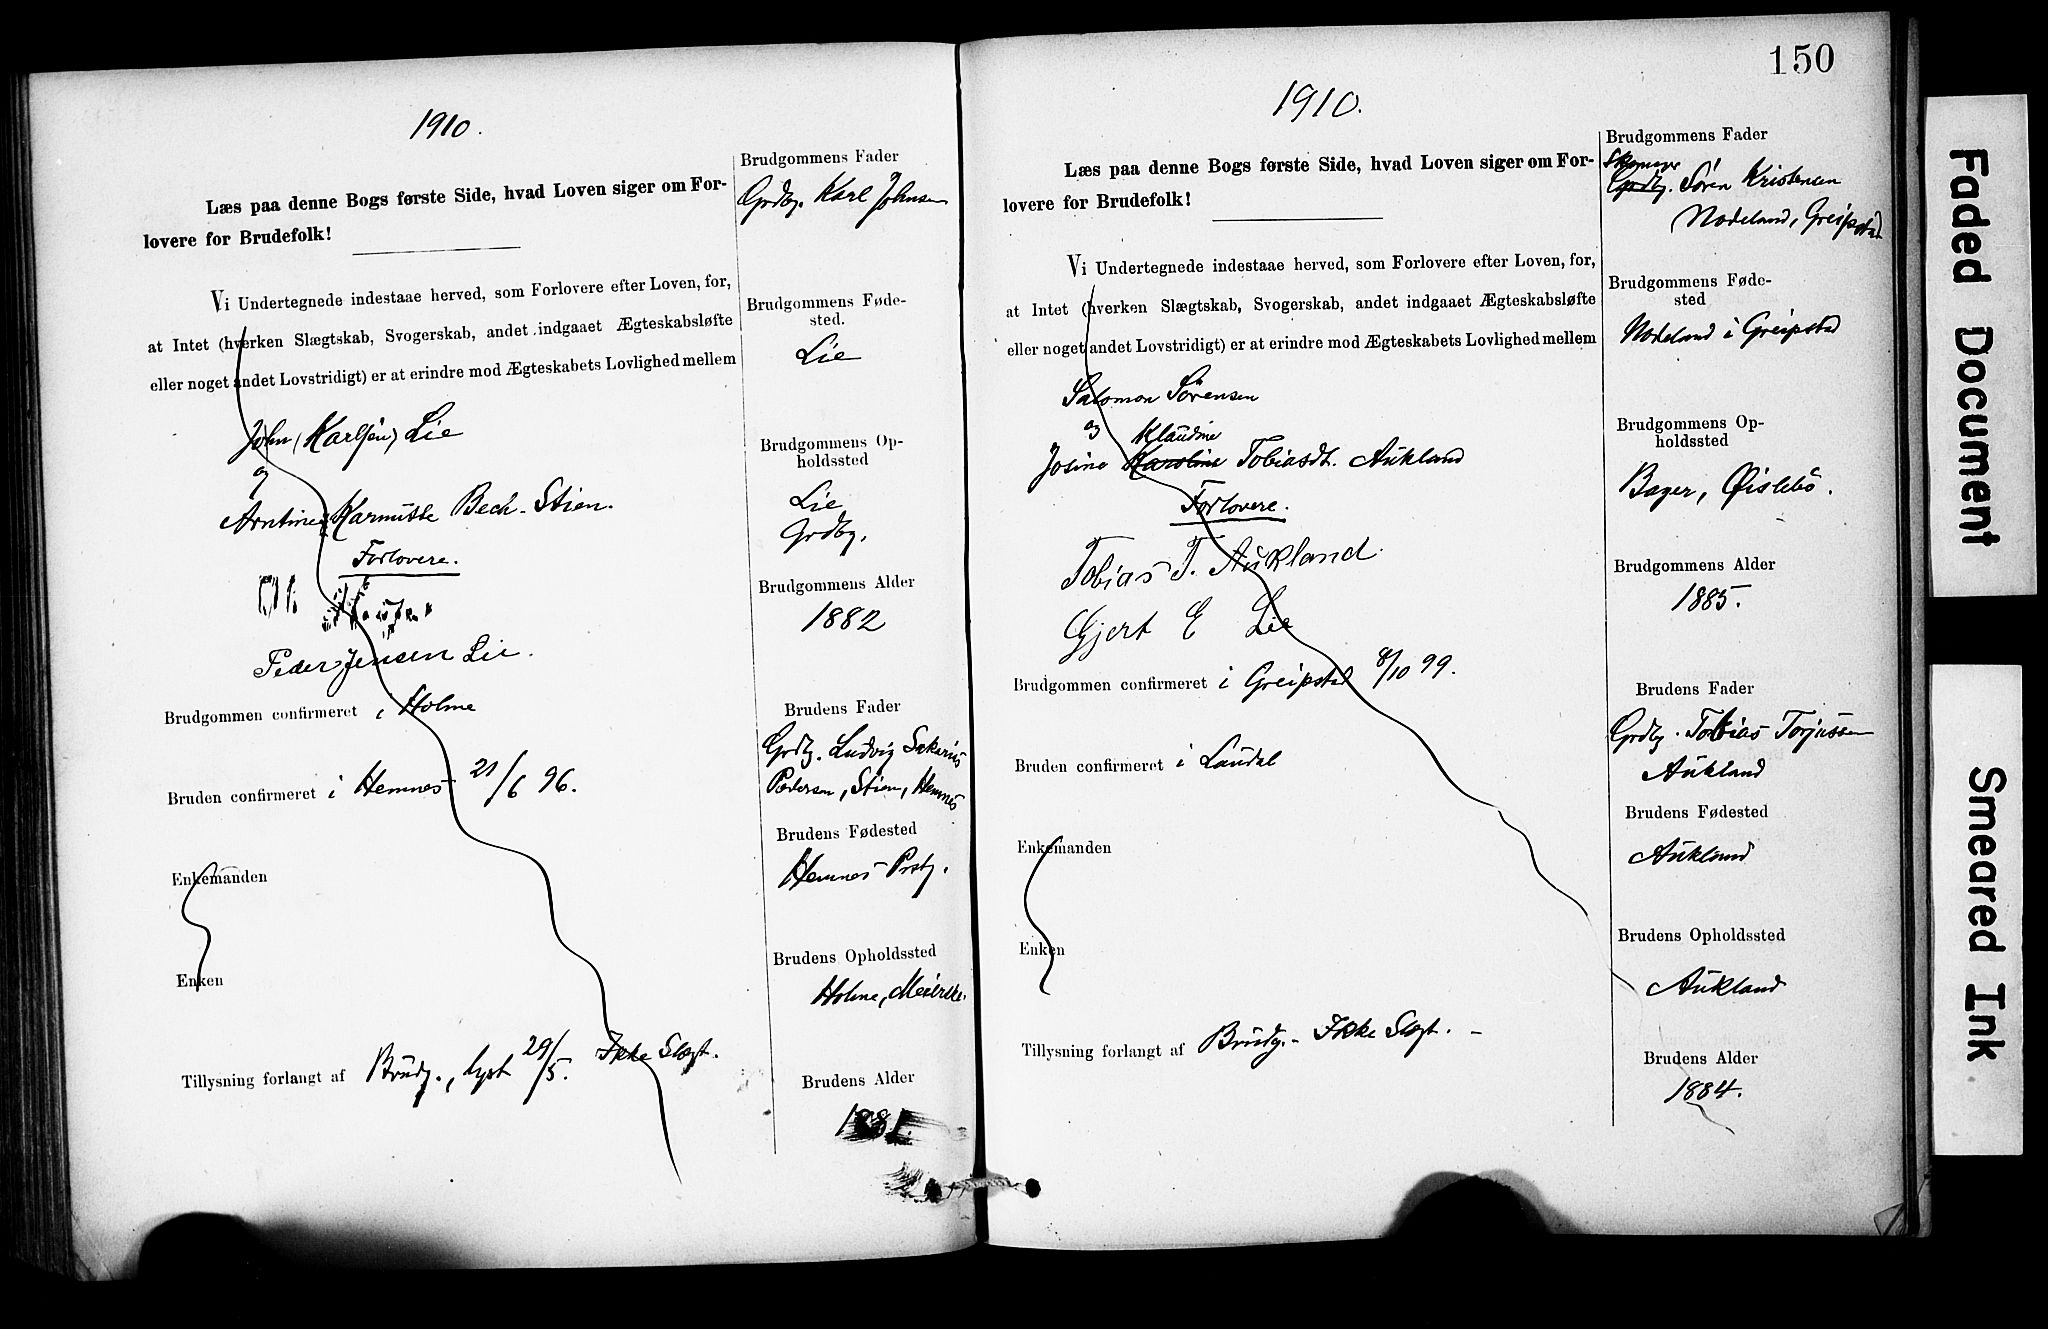 1910.
Læs paa denne Bogs første Side, hvad Loven siger om For-
lovere for Brudefolk!
Vi Undertegnede indestaae herved, som Forlovere efter Loven, for,
at Intet (hverken Slægtskab, Svogerskab, andet indgaaet Ægteskabsløfte
eller noget andet Lovstridigt) er at erindre mod Ægteskabets Lovlighed mellem
John (Karlsen) Lie
og
Arntine Karnutte Bech-Stien.
Forlovere.
Peder Jensen Lie.
Brudgommen confirmeret i Holme
Bruden confirmeret i Hemnes 21/6 96.
Enkemanden
Enken
Tillysning forlangt af Brudg., lyst 29/5. Ikke Slægt.
Brudgommens Fader
Grdbg. Karl Johnsen
Brudgommens Føde-
sted.
Lie
Brudgommens Op-
holdssted
Lie
Grdbg.
Brudgommens Alder
1882
Brudens Fader
Grdbg. Ludvig Sakarias
Pedersen, Stien, Hemnes
Brudens Fødested
Hemnes Prstg.
Brudens Opholdssted
Holme,
Brudens Alder
1881.
150
1910.
Læs paa denne Bogs første Side, hvad Loven siger om For-
lovere for Brudefolk!
Vi Undertegnede indestaae herved, som Forlovere efter Loven, for,
at Intet (hverken Slægtskab, Svogerskab, andet indgaaet Ægteskabsløfte
eller noget andet Lovstridigt) er at erindre mod Ægteskabets Lovlighed mellem
Salomon Sörensen
og Klaudine
Josine Karoline Tobiasdt. Aukland
Forlovere.
Tobias T. Aukland.
Gjert E Lie
Brudgommen confirmeret i Greipstad 8/10 99.
Bruden confirmeret i Laudal
Enkemanden
Enken
Tillysning forlangt af Brudg.- Ikke Slægt. -
Brudgommens Fader
Skomager
Grdbg. Sören Kristensen
Nodeland, Greipstad
Brudgommens Føde-
sted
Nodeland i Greipstad
Brudgommens Op-
holdssted
Bager, Øislebö.
Brudgommens Alder
1885.
Brudens Fader
Grdbg. Tobias Torjussen
Aukland
Brudens Fødested
Aukland
Brudens Opholdssted
Aukland
Brudens Alder
1884.
Faded Document
Smeared Ink